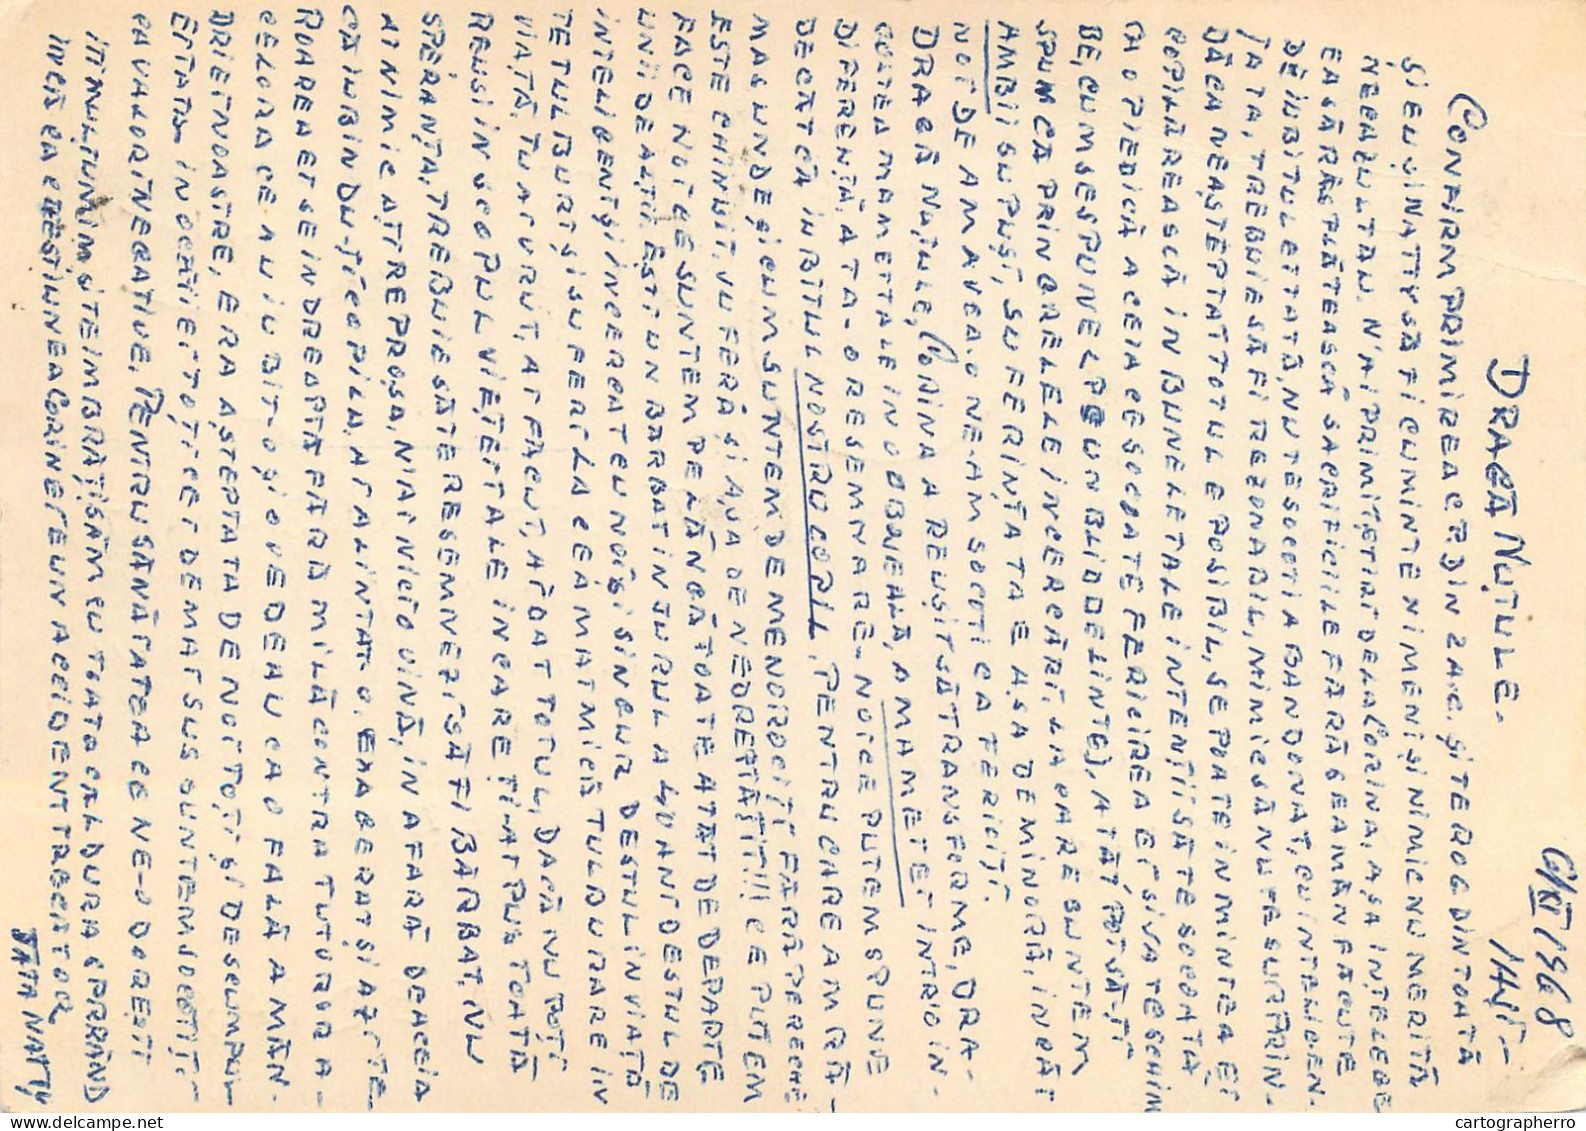 6/XI 1968
IAȘI -
DRAGĂ NUȚULE.
CONFIRM PRIMIREA C.P. DIN 2 A.C. ȘI TE ROG DIN TOATĂ
ȘI EU ȘI NATTY SĂ FI CUMINTE NIMENI ȘI NIMIC NU MERITĂ
NECAZUL TĂU. N'AI PRIMIT ȘTIRI DE LA CORINA, AȘA INȚELEGE
EA SĂ RĂSPLĂTEASCĂ SACRIFICIILE FĂRĂ SEAMĂN FĂCUTE
DE IUBITUL EI TATĂ, NU TE SOCOTI ABANDONAT, CU INTELIGEN-
ȚA TA, TREBUIE SĂ FI REZONABIL, NIMIC SĂ NU TE SURPRIN-
DĂ CA NEAȘTEPTAT TOTUL E POSIBIL, SE POATE IN MINTEA EI
COPILĂREASCĂ IN BUNELE TALE INTENȚII SĂ TE SOCOATĂ
CA O PIEDICĂ A CEIA CE SOCOATE FERICIREA EI SI VA TE SCHIM
BE, CUM SE SPUNE LP UN BLID DE LINTE), ATÂT POT SĂ-ȚI
SPUM CĂ PRIN GRELELE INCERCĂRI, LA CARE SUNTEM
AMBII SUPUȘI, SUFERINȚA TA E AȘA DE MINORĂ, INCÂT
NOI DE AM AVEA-O NE-AM SOCOTI CA FERICIȚI.
DRAGĂ NUȚULE, CORINA A REUȘIT SĂ TRANSFORME, DRA-
GOSTEA MAMEI TALE IN OBOSEALĂ, A MAMEI EI INTR'O IN-
DIFERENȚĂ, A TA - O RESEMNARE - NOI CE PUTEM SPUNE
DECÂT CĂ IUBITUL NOSTRU COPIL, PENTRU CARE AM RĂ-
MAS UNDE ȘI CUM SUNTEM, DE MENOROCIȚI FĂRĂ PERECHE
ESTE CHINUIT, SUFERĂ ȘI A, VA DE NEDREPTĂȚIT!!! CE PUTEM
FACE NOI CE SUNTEM PE LÂNGĂ TOATE ATÂT DE DEPARTE
UNII DE ALȚII. EȘTI UN BARBAT IN JURUL A 40 ANI DESTUL DE
INTELIGENT ȘI INCERCAT CU NOI ȘI SINGUR DESTUL IN VIAȚĂ
TE TULBURI ȘI SUFERI LA CEA MAI MICĂ TULBURARE IN
VIAȚĂ. TU AI VRUT, AI FACUT, AI DAT TOTUL, DACĂ NU POȚI
REUSI IN SCOPUL VIEȚEI TALE IN CARE ȚI-AI PUS TOATĂ
SPERANȚA, TREBUIE SĂ TE RESEMNEZI SĂ FI BĂRBAT, NU
AI NIMIC A ȚI REPROȘA, N'AI NICIO VINĂ, IN AFARĂ DE ACEIA
CĂ IUBINDU-ȚI COPILA, AI ALINTAT-O, EXAGERAT ȘI AZI TE
DOARE A EI SE INDREAPTĂ FĂRĂ MILĂ CONTRA TUTUROR A-
CELORA CE AU IUBIT-O ȘI O VEDEAU CA O FALĂ A MÂN-
DRIEI NOASTRE, ERA AȘTEPTATA DE NOI TOȚI ȘI DESCUMPĂ-
EI TATĂ IN OCHII EI TOȚI CEI DE MAI SUS SUNTEM SOCOTIȚI
CA VALORI NEGATIVE. PENTRU SĂNĂTATEA CE NE-O DOREȘTI
IȚI MULȚUMIM ȘI TE IMBRĂȚIȘĂM CU TOATA CALDURA SPERÂND
INCĂ CA CHESTIUNEA CORINEI E UN ACCIDENT TRECĂTOR
TATA NATTY
cartographerro